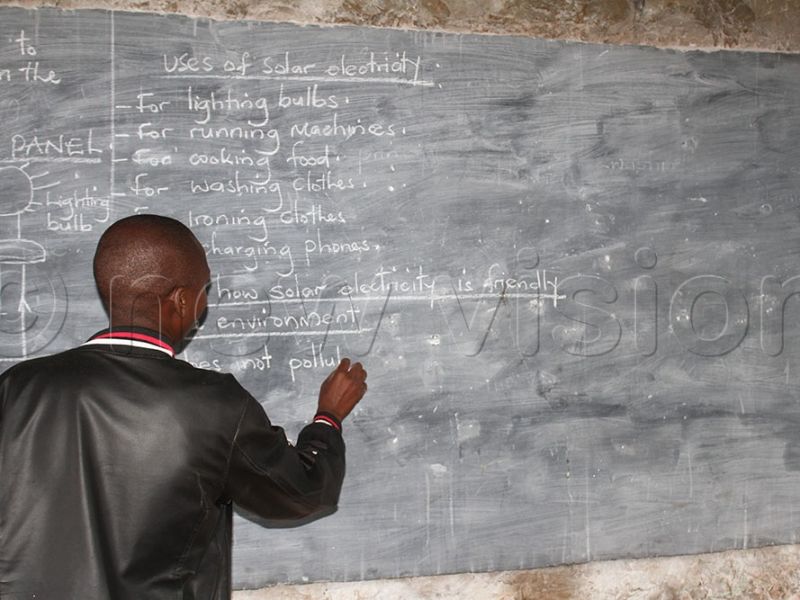 to
in the
PANEL.
Lighting
bulb
Uses of solar electricity.
- For lighting bulbs.
- For running Machines.
- For cooking food.
- For washing clothes.
Ironing clothes
charging phones.
how solar electricity is friendly
environment
not pollu
© new vision